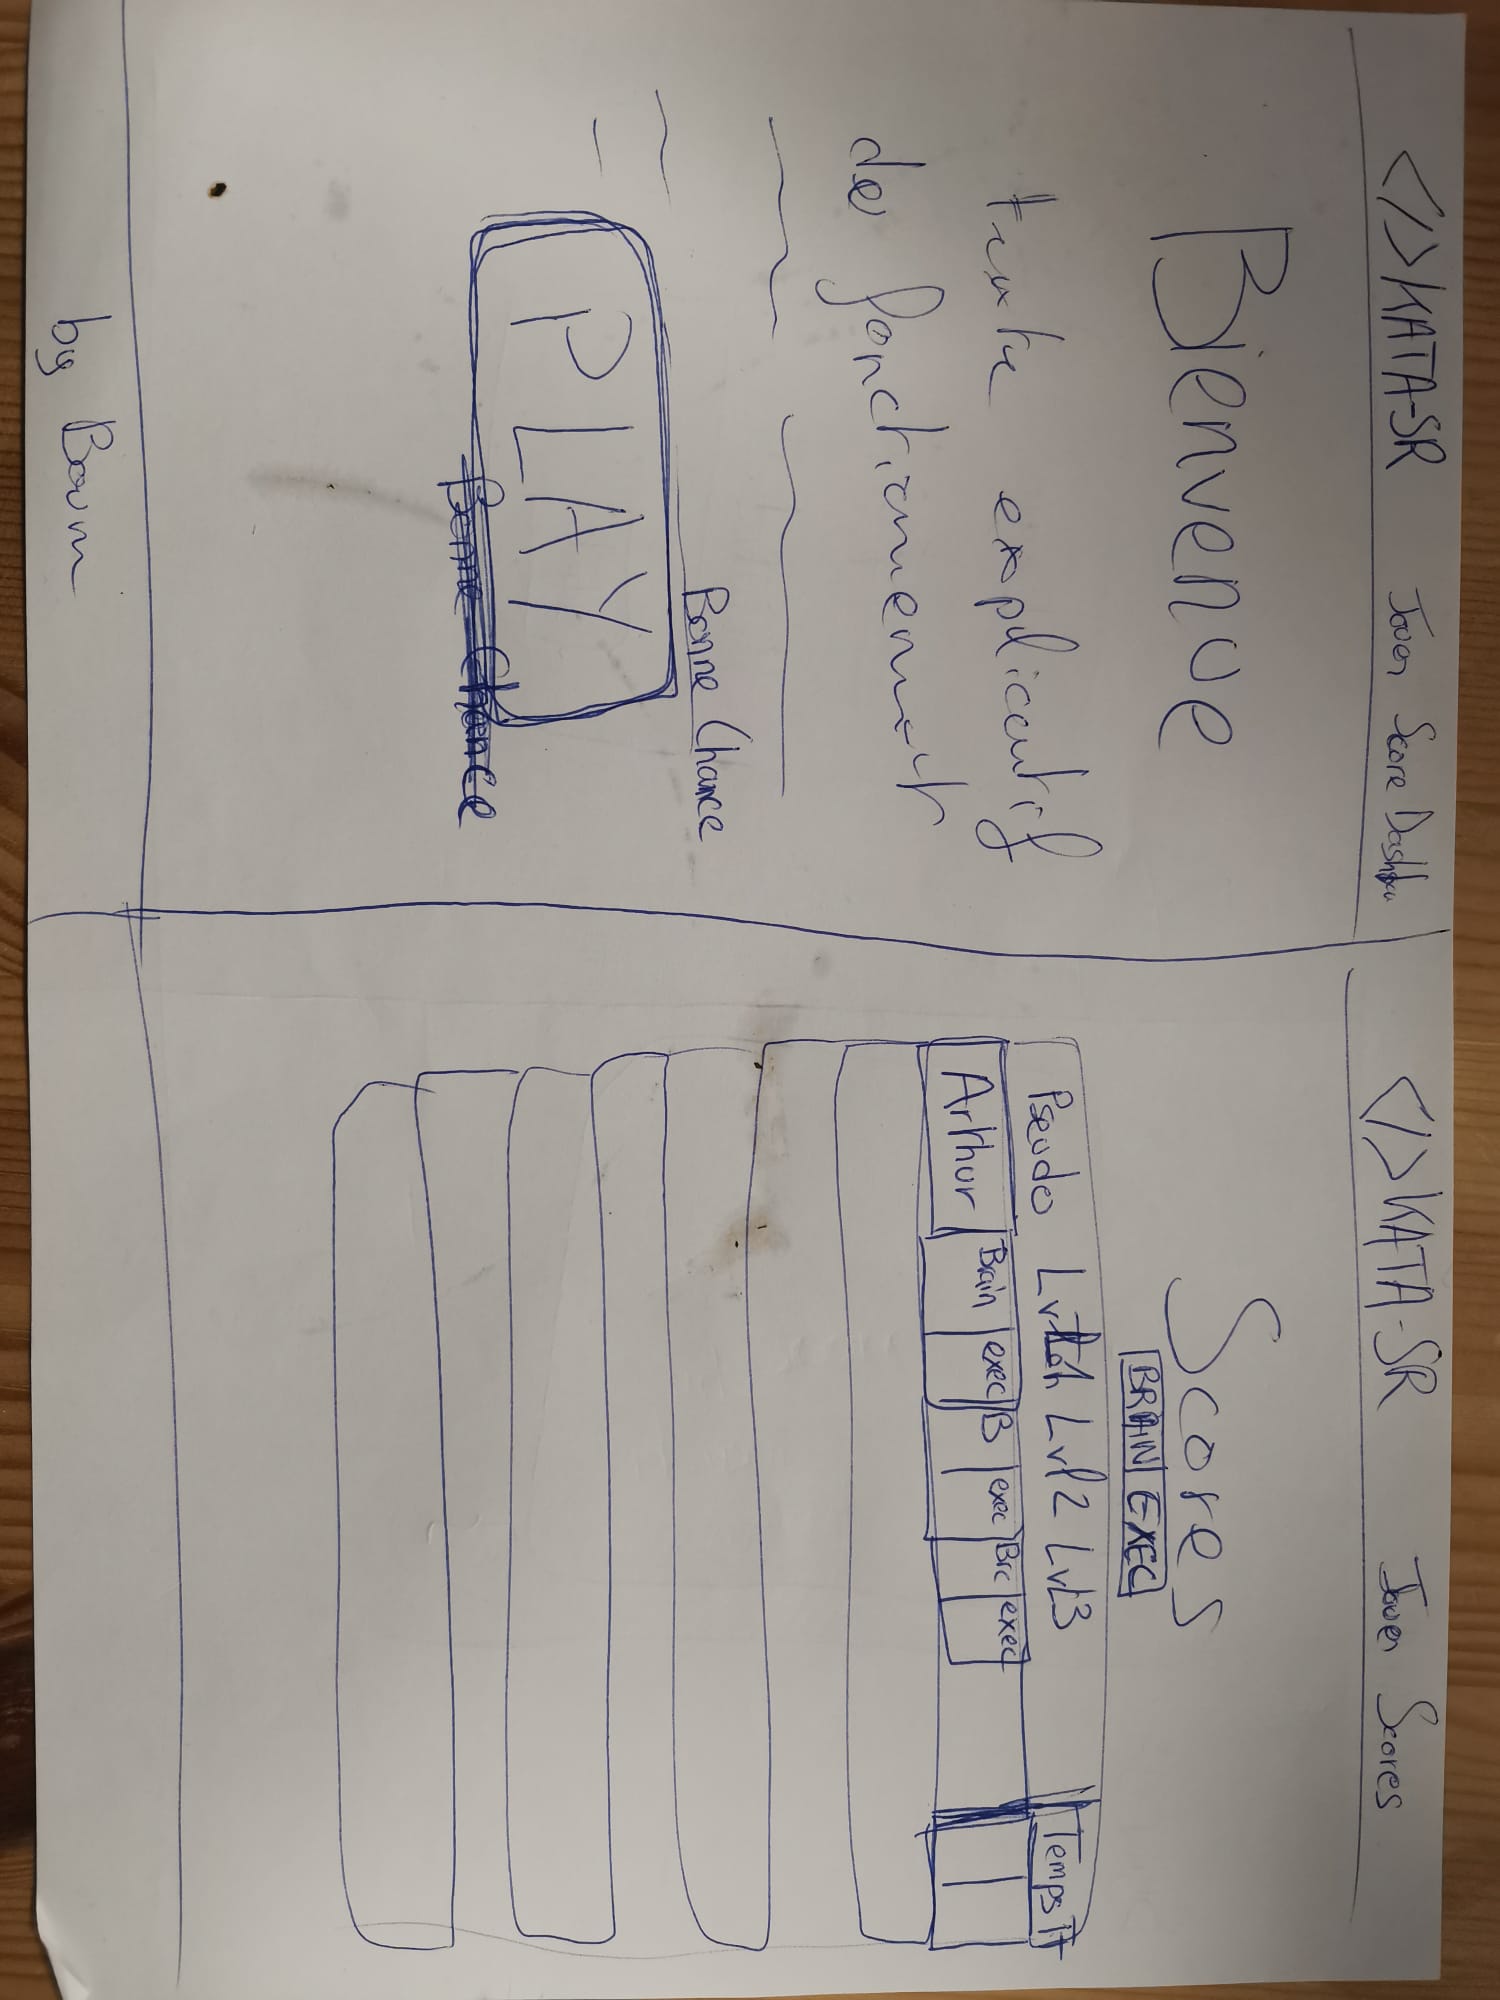 </>KATA-SR Jouer Score
Bienvenue
texte explicatif
de fonctionnement
Bonne Chance
PLAY
Bonne Chance
by Boum
</>KATA-SR Jouer Scores
Scores
BRAIN EXEC
Pseudo Lvl2 Lvl3 Temps
Arthur Brain exec B exec Bra exec